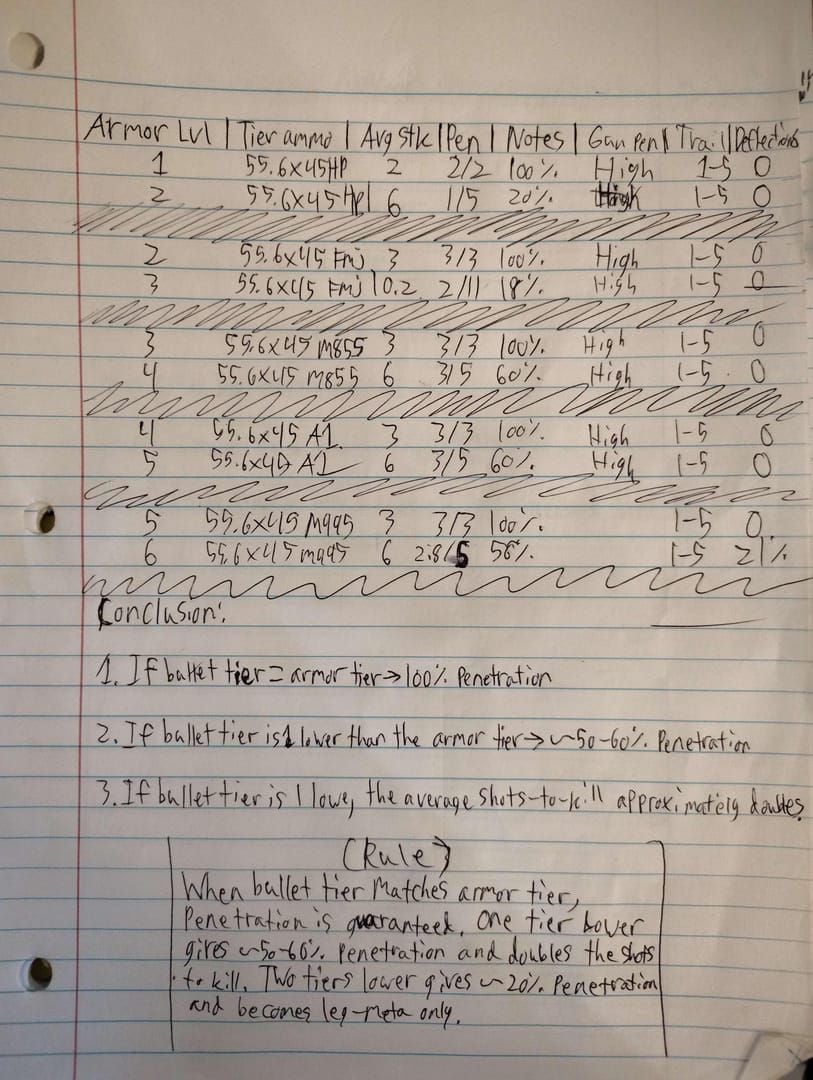 Armor Lvl | Tier ammo | Avg Stk | Pen | Notes | Gun Pen | Trail | Deflections
1 55.6x45HP 2 2/2 100% High 1-5 0
2 55.6x45 Hp 6 1/5 20% High 1-5 0
2 55.6x45 Fmj 3 3/3 100% High 1-5 0
3 55.6x45 FMj 10.2 2/11 18% High 1-5 0
3 55.6x45 M855 3 3/3 100% High 1-5 0
4 55.6x45 M855 6 3/5 60% High 1-5 0
4 55.6x45 A1 3 3/3 100% High 1-5 0
5 55.6x45 A1 6 3/5 60% High 1-5 0
5 55.6x45 M995 3 3/3 100% 1-5 0
6 55.6x45 m995 6 2.8/5 56% 1-5 21%
Conclusion:
1. If bullet tier = armor tier → 100% Penetration
2. If bullet tier is 1 lower than the armor tier → ~50-60% Penetration
3. If bullet tier is 1 lowe, the average shots-to-kill approximately doubles.
(Rule)
When bullet tier matches armor tier,
Penetration is guaranteed. One tier lower
gives ~50-60% penetration and doubles the shots
to kill. Two tiers lower gives ~20% Penetration
and becomes leg-meta only.